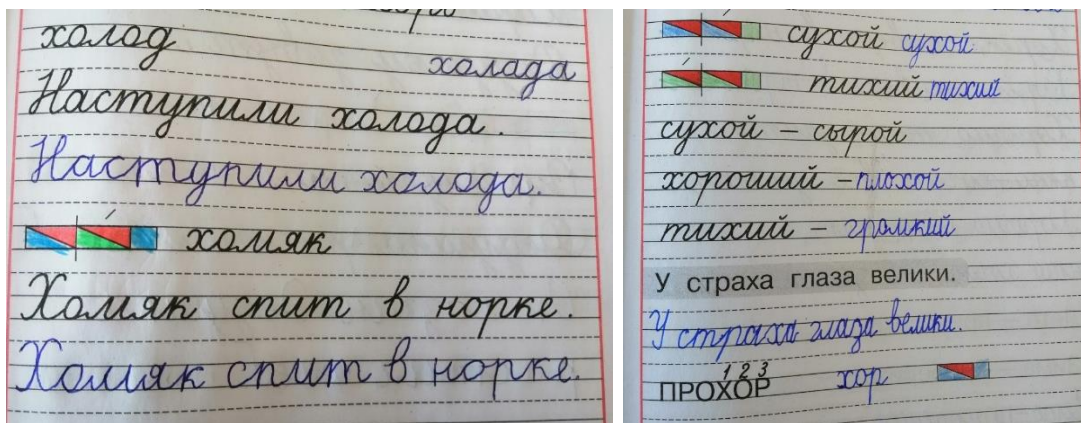 холод
холада
Наступили холода.
Наступили холода.
хомяк
Хомяк спит в норке.
Хомяк спит в норке.
сухой сухой
тихий тихий
сухой – сырой
хороший – плохой
тихий – громкий
У страха глаза велики.
У страха глаза велики.
1 2 3
ПРОХОР хор